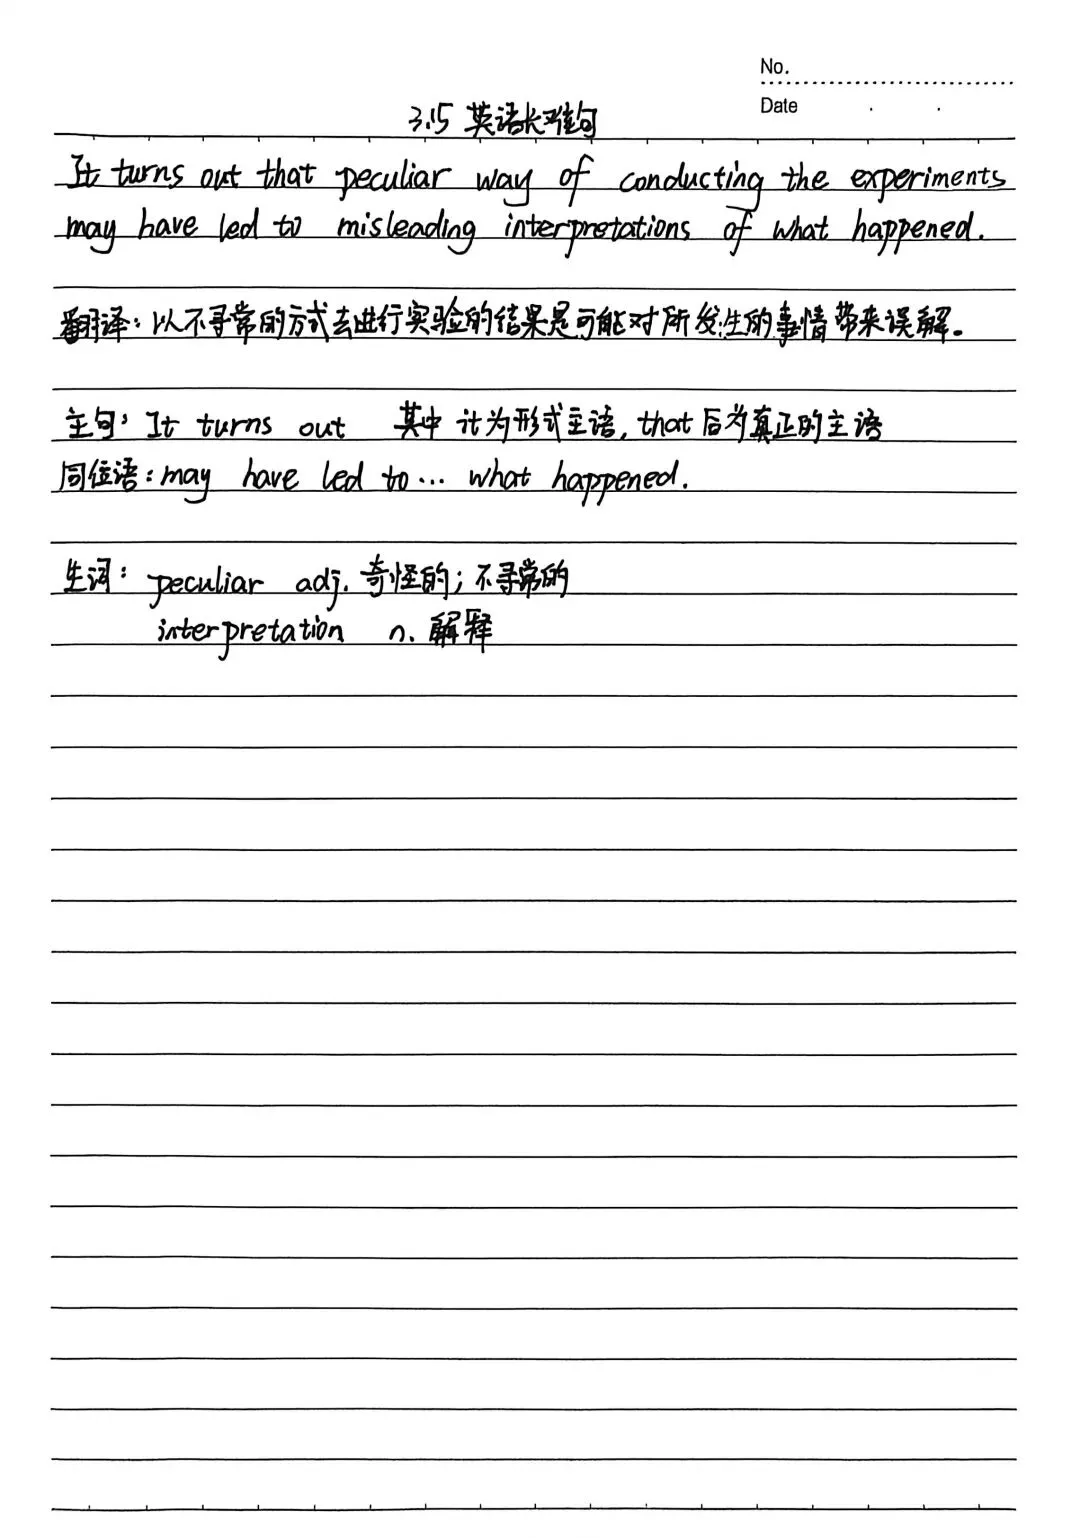 No.
Date
3.15 英语长难句
It turns out that peculiar way of conducting the experiments
may have led to misleading interpretations of what happened.
翻译：以不寻常的方式去进行实验的结果是可能对所发生的事情带来误解。
主句：It turns out 其中 it为形式主语，that后为真正的主语
同位语：may have led to... what happened.
生词：peculiar adj. 奇怪的；不寻常的
interpretation n. 解释